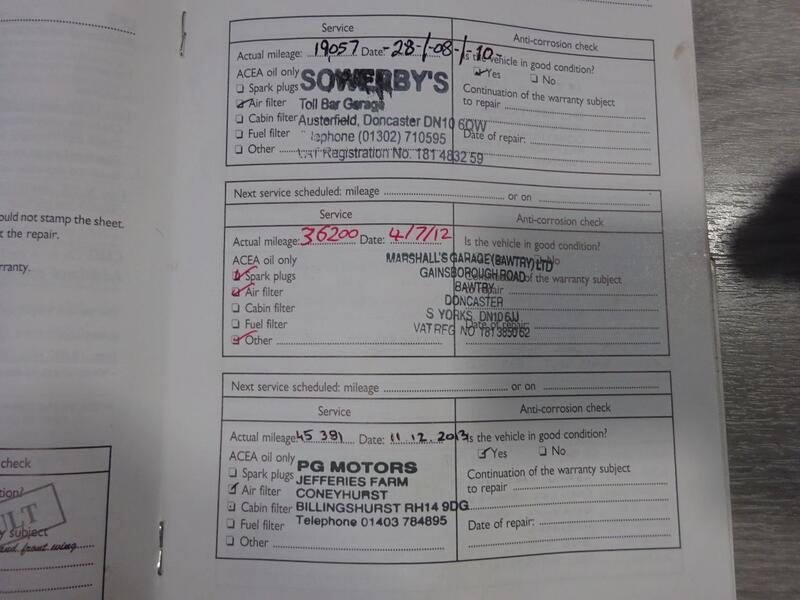 ould not stamp the sheet.
t the repair.
rranty.
check
tion?
ULT
y subject
and front wing
Service
Anti-corrosion check
Actual mileage: 19057 Date: -28-/-08-/-10-
Is the vehicle in good condition?
Yes No
ACEA oil only
Spark plugs
Air filter
Cabin filter
Fuel filter
Other
SOWERBY'S
Toll Bar Garage
Austerfield, Doncaster DN10 6QW
Telephone (01302) 710595
VAT Registration No. 181 4832 59
Continuation of the warranty subject
to repair
Date of repair:
Next service scheduled: mileage or on
Service
Anti-corrosion check
Actual mileage: 36200 Date: 4/7/12
Is the vehicle in good condition?
No
ACEA oil only
Spark plugs
Air filter
Cabin filter
Fuel filter
Other
MARSHALL'S GARAGE (BAWTRY) LTD
GAINSBOROUGH ROAD
BAWTRY
DONCASTER
S YORKS, DN10 6JJ
VAT REG NO 181 3850 62
of the warranty subject
repair
Date of repair:
Next service scheduled: mileage or on
Service
Anti-corrosion check
Actual mileage: 45 381 Date: 11.12.2013
Is the vehicle in good condition?
Yes No
ACEA oil only
Spark plugs
Air filter
Cabin filter
Fuel filter
Other
PG MOTORS
JEFFERIES FARM
CONEYHURST
BILLINGSHURST RH14 9DG
Telephone 01403 784895
Continuation of the warranty subject
to repair
Date of repair: